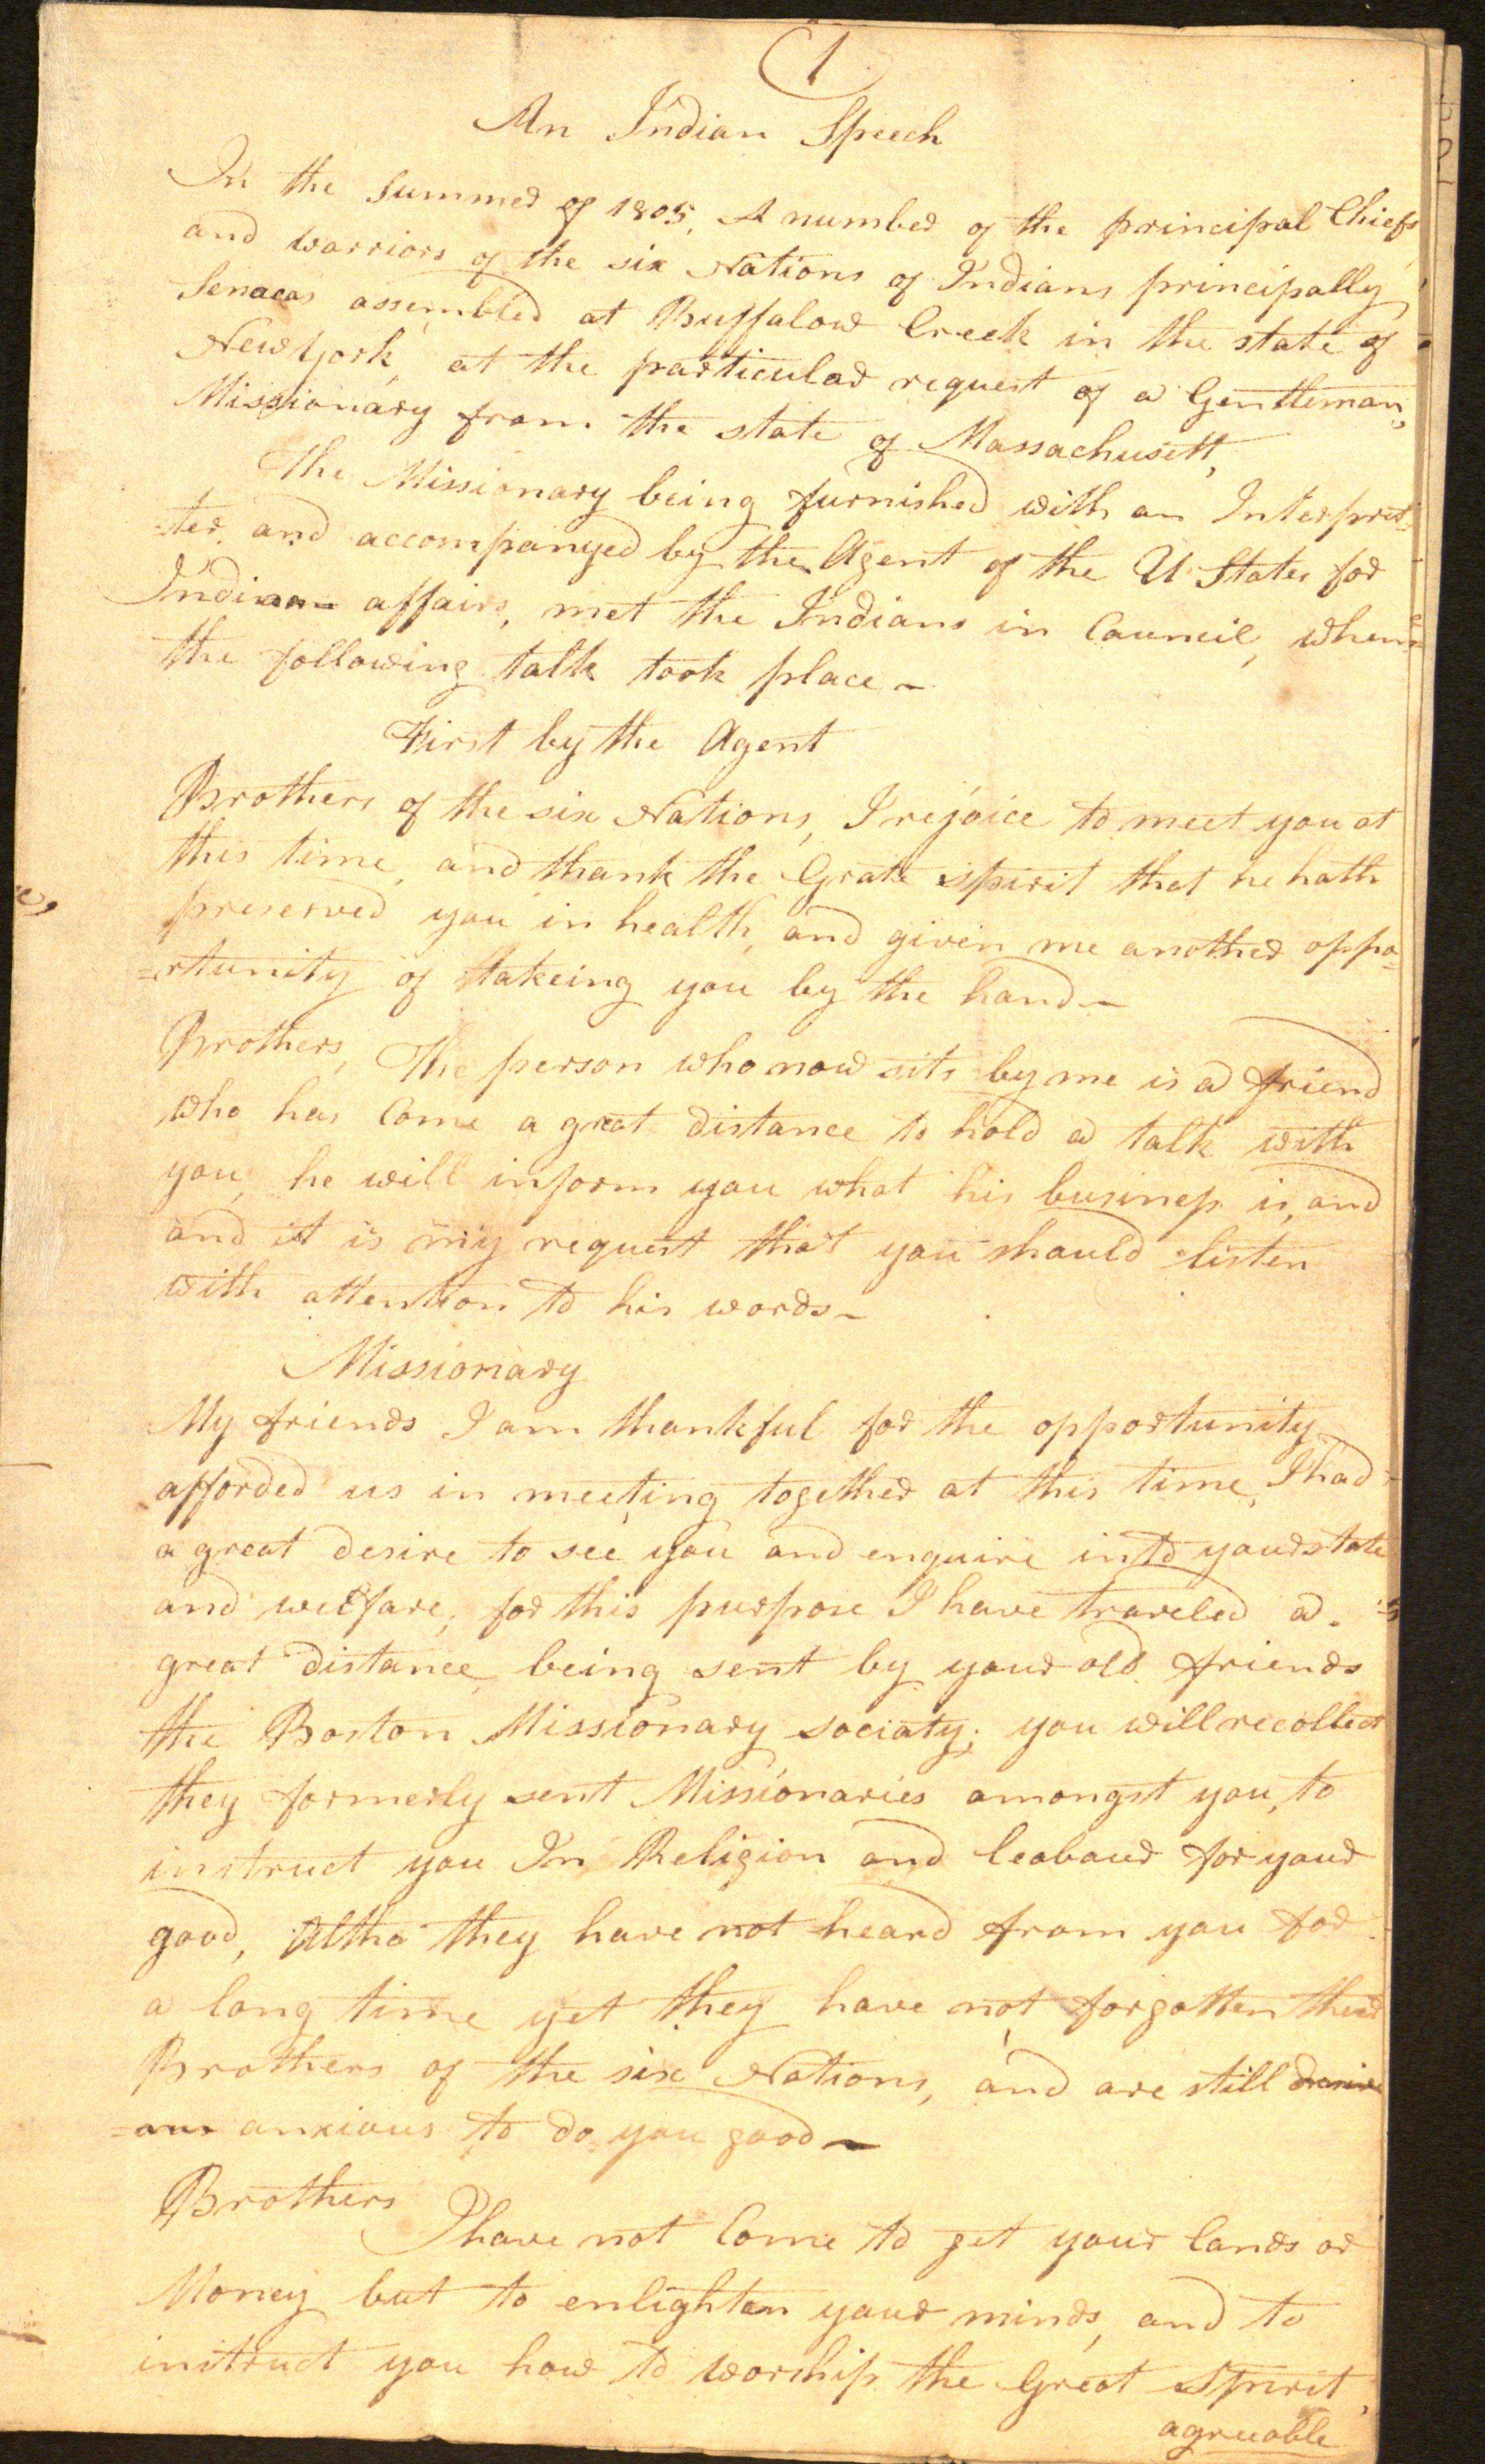 1
An Indian Speech
In the Summer of 1805, A number of the principal Chiefs
and warriors of the six Nations of Indians principally
Senacas assembled at Buffalow Creek in the state of
New York, at the particular request of a Gentleman,
Missionary from the state of Massachusett,
The Missionary being furnished with an Interpret=
=ter, and accompanyed by the Agent of the U States for
Indian affairs, met the Indians in Council, when
the following talk took place ~
First by the Agent
Brothers of the six Nations, I rejoice to meet you at
this time, and thank the Grate spirit that he hath
preserved you in health, and given me another oppo=
=rtunity of takeing you by the hand ~
Brothers, The person who now sits by me is a friend
who has Come a great distance to hold a talk with
you, he will inform you what his business is, and
and it is my request that you should listen
with attention to his words ~
Missionary
My friends I am thankful for the opportunity
afforded us in meeting together at this time, I had
a great desire to see you and enquire into your state
and welfare, for this purpose I have traveled a
great distance, being sent by your old friends
the Boston Missionary sociaty; you will recollect
they formerly sent Missionaries amongst you, to
instruct you In Religion and leabour for your
good, Altho they have not heard from you for
a long time yet they have not forgotten their
Brothers of the six Nations, and are still
anxious to do you good ~
Brothers
I have not Come to get your lands or
Money but to enlighten your minds, and to
instruct you how to worship the Great Spirit,
agreeable